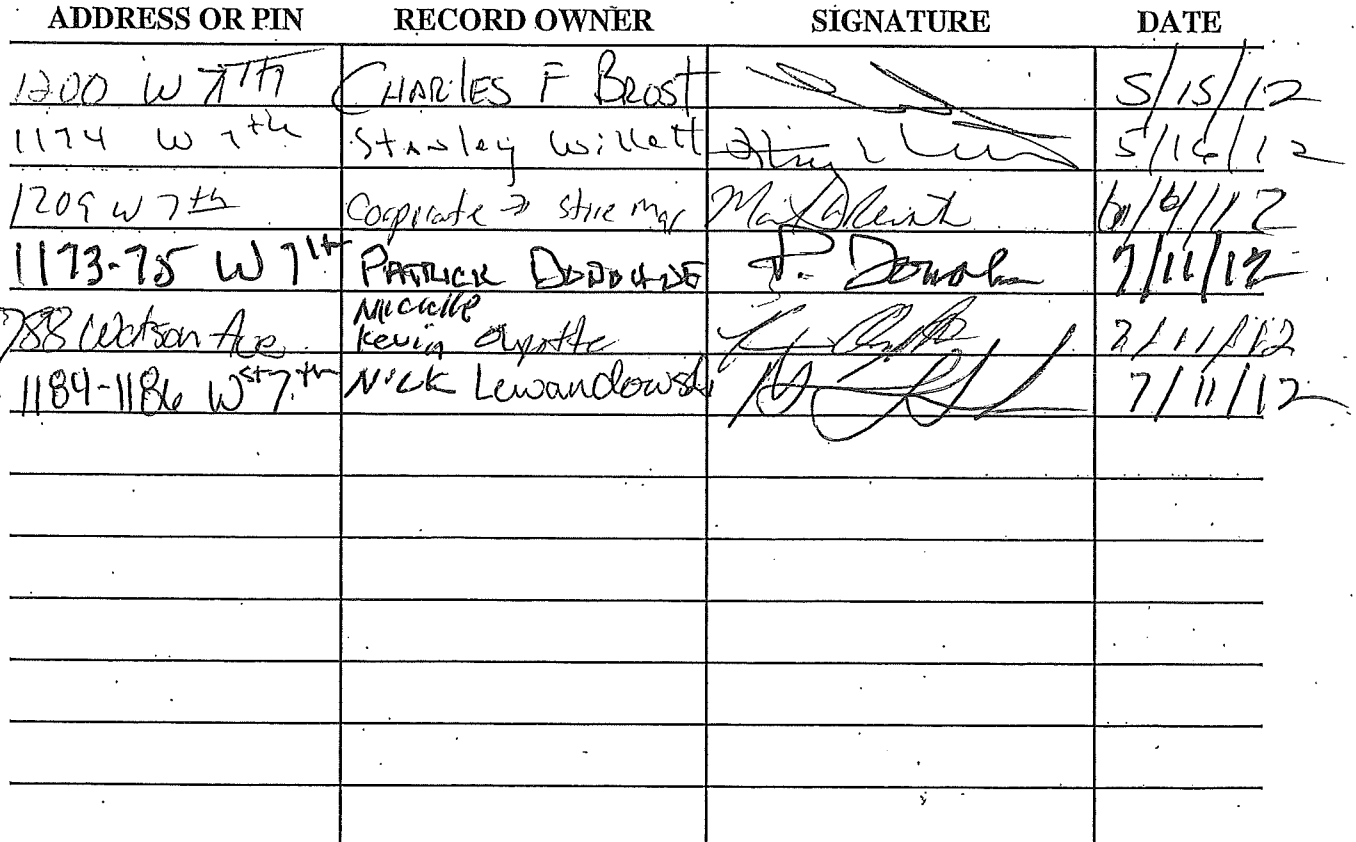 ADDRESS OR PIN RECORD OWNER SIGNATURE DATE
1200 W 7TH CHARLES F BROST 5/15/12
1174 W 7th Stanley Willett 5/16/12
1209 W 7th Corporate → store mgr 6/6/12
1173-75 W 7th PATRICK DONOHUE P. Donoh 7/11/12
Michelle
788 Watson Ave Kevin 7/11/12
1184-1186 W St 7th Nick Lewandowski 7/11/12